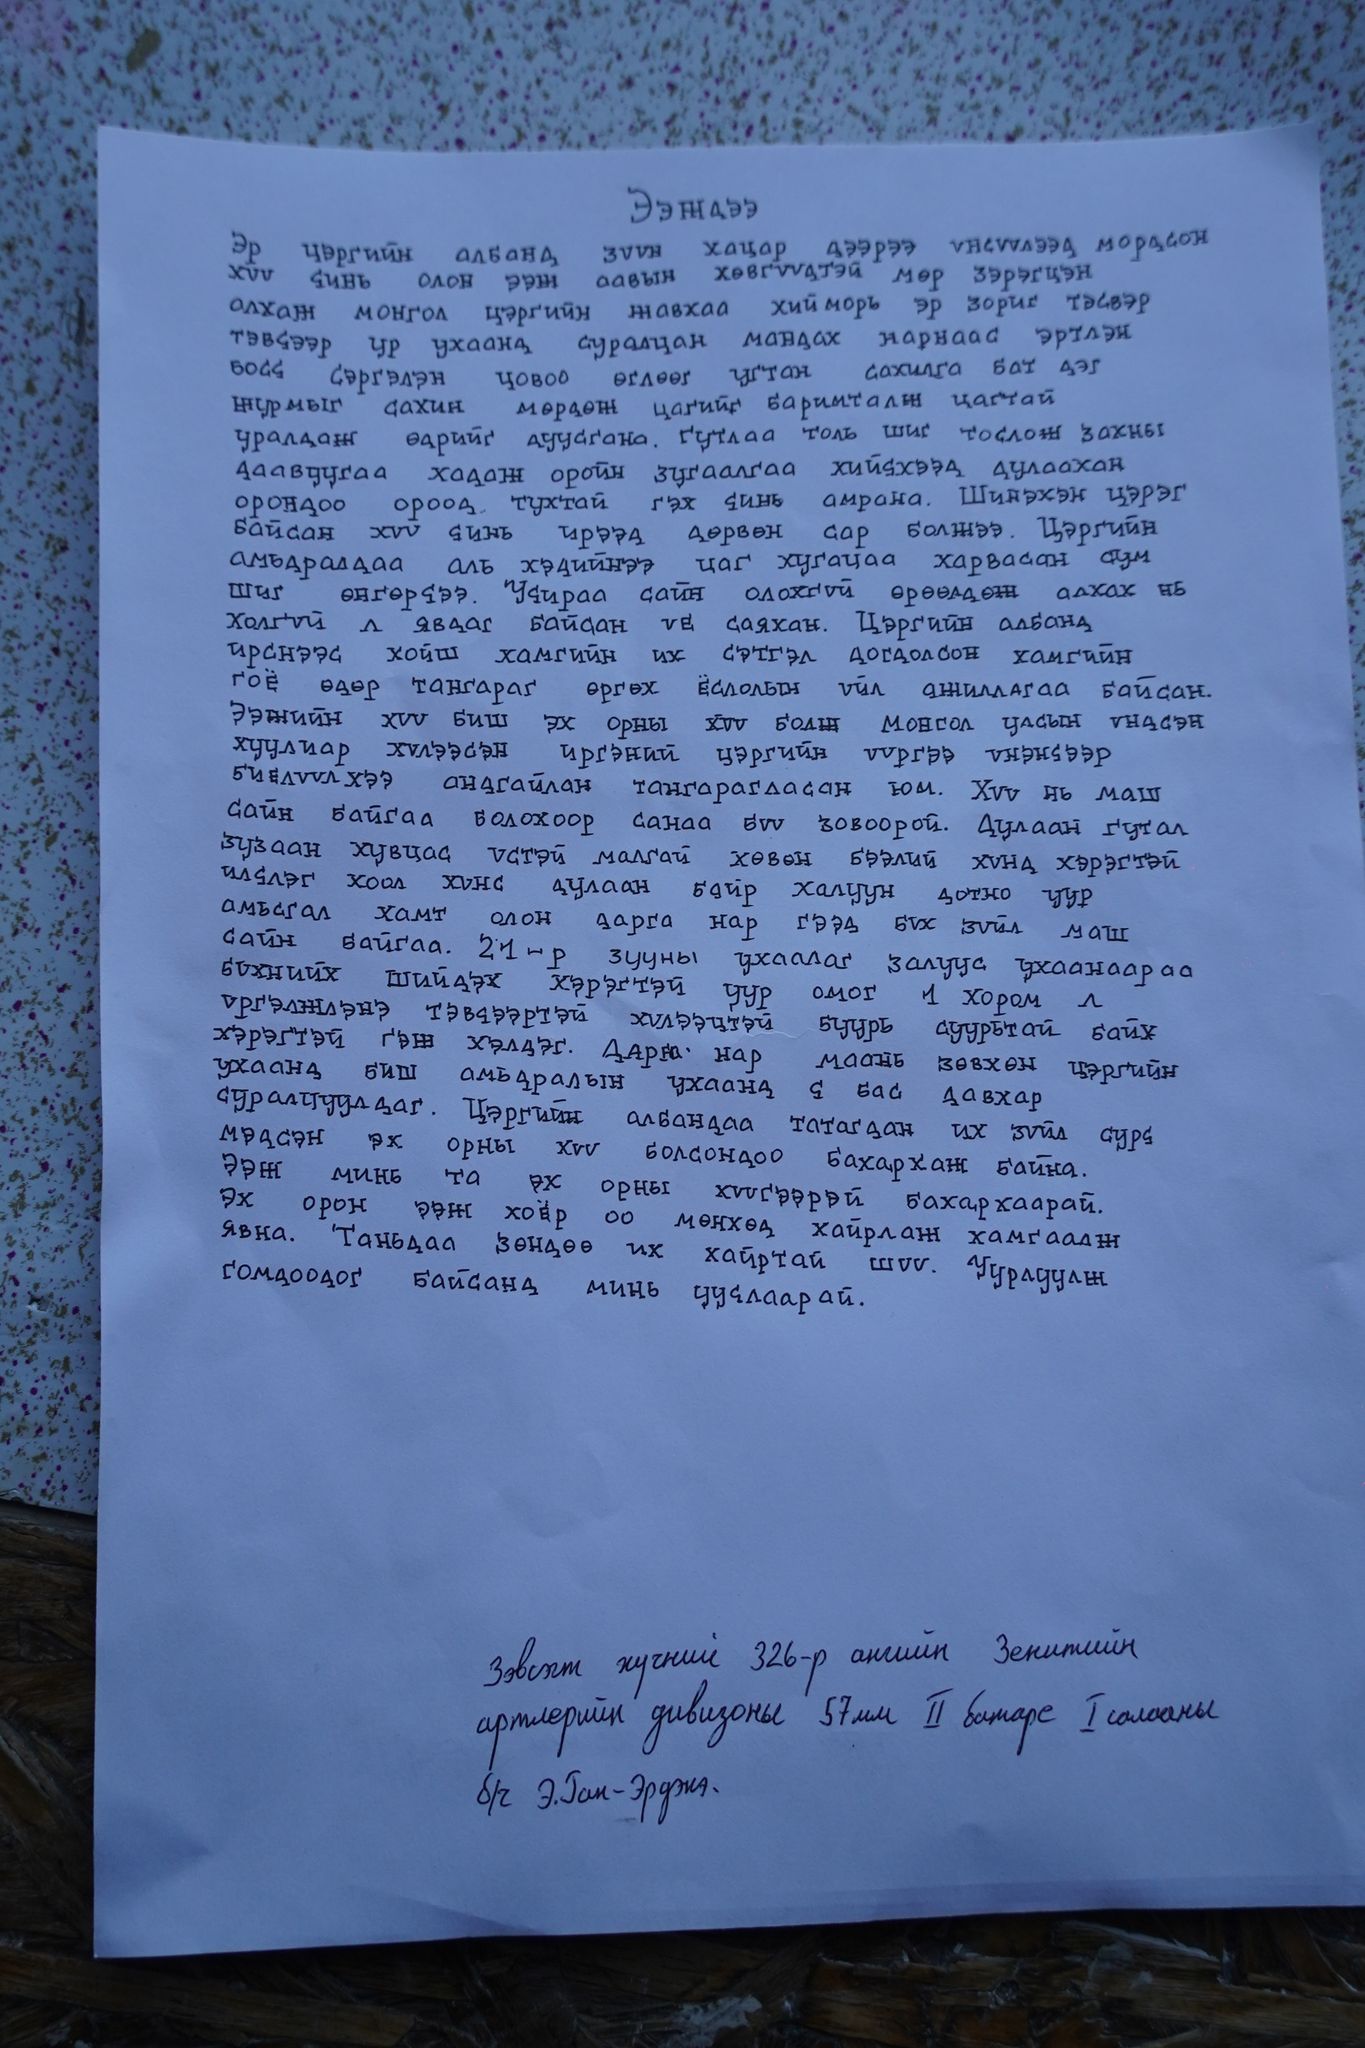 Ээждээ
Эр цэргийн албанд зүүн хацар дээрээ үнсүүлээд мордсон
хүү чинь олон ээж аавын хөвгүүдтэй мөр зэрэгцэн
алхаж монгол цэргийн жавхаа хийморь эр зориг тэсвэр
тэвчээр ур ухаанд суралцан мандах нарнаас эртлэн
босч сэргэлэн цовоо өглөөг угтан сахилга бат дэг
журмыг сахин мөрдөж цагийг баримталж цагтай
уралдаж өдрийг дуусгана. Гутлаа толь шиг тослож захны
даавуугаа хадаж оройн зугаалгаа хийчхээд дулаахан
орондоо ороод тухтай гэх чинь амрана. Шинэхэн цэрэг
байсан хүү чинь ирээд дөрвөн сар болжээ. Цэргийн
амьдралдаа аль хэдийнээ цаг хугацаа харвасан сум
шиг өнгөрчээ. Учираа сайн олохгүй өрөөлдөж алхах нь
холгүй л явдаг байсан үе саяхан. Цэргийн албанд
ирснээс хойш хамгийн их сэтгэл догдолсон хамгийн
гоё өдөр тангараг өргөх ёслолын үйл ажиллагаа байсан.
Ээжийн хүү биш эх орны хүү болж Монгол улсын үндсэн
хуулиар хүлээсэн иргэний цэргийн үүргээ үнэнчээр
биелүүлхээ андгайлан тангарагласан юм. Хүү нь маш
сайн байгаа болохоор санаа бүү зовоорой. Дулаан гутал
зузаан хувцас үстэй малгай хөвөн бээлий хүнд хэрэгтэй
илчлэг хоол хүнс дулаан байр халуун дотно уур
амьсгал хамт олон дарга нар гээд бүх зүйл маш
сайн байгаа. 21-р зууны ухаалаг залуус ухаанаараа
бүхнийх шийдэх хэрэгтэй уур омог 1 хором л
үргэлжлэнэ тэвчээртэй хүлээцтэй буурь суурьтай байх
хэрэгтэй гэж хэлдэг. Дарга нар маань зөвхөн цэргийн
ухаанд биш амьдралын ухаанд ч бас давхар
суралцуулдаг. Цэргийн албандаа татагдан их зүйл сурч
мэдсэн эх орны хүү болсондоо бахархаж байна.
Ээж минь та эх орны хүүгээрэй бахархаарай.
Эх орон ээж хоёр оо мөнхөд хайрлаж хамгаалж
явна. Таньдаа зөндөө их хайртай шүү. Уурлуулж
гомдоодог байсанд минь уучлаарай.
Зэвсэгт хүчний 326-р ангийн Зенитийн
артлерийн дивизоны 57мм II батаре I салааны
б/ч Э.Ган-Эрдэнэ.